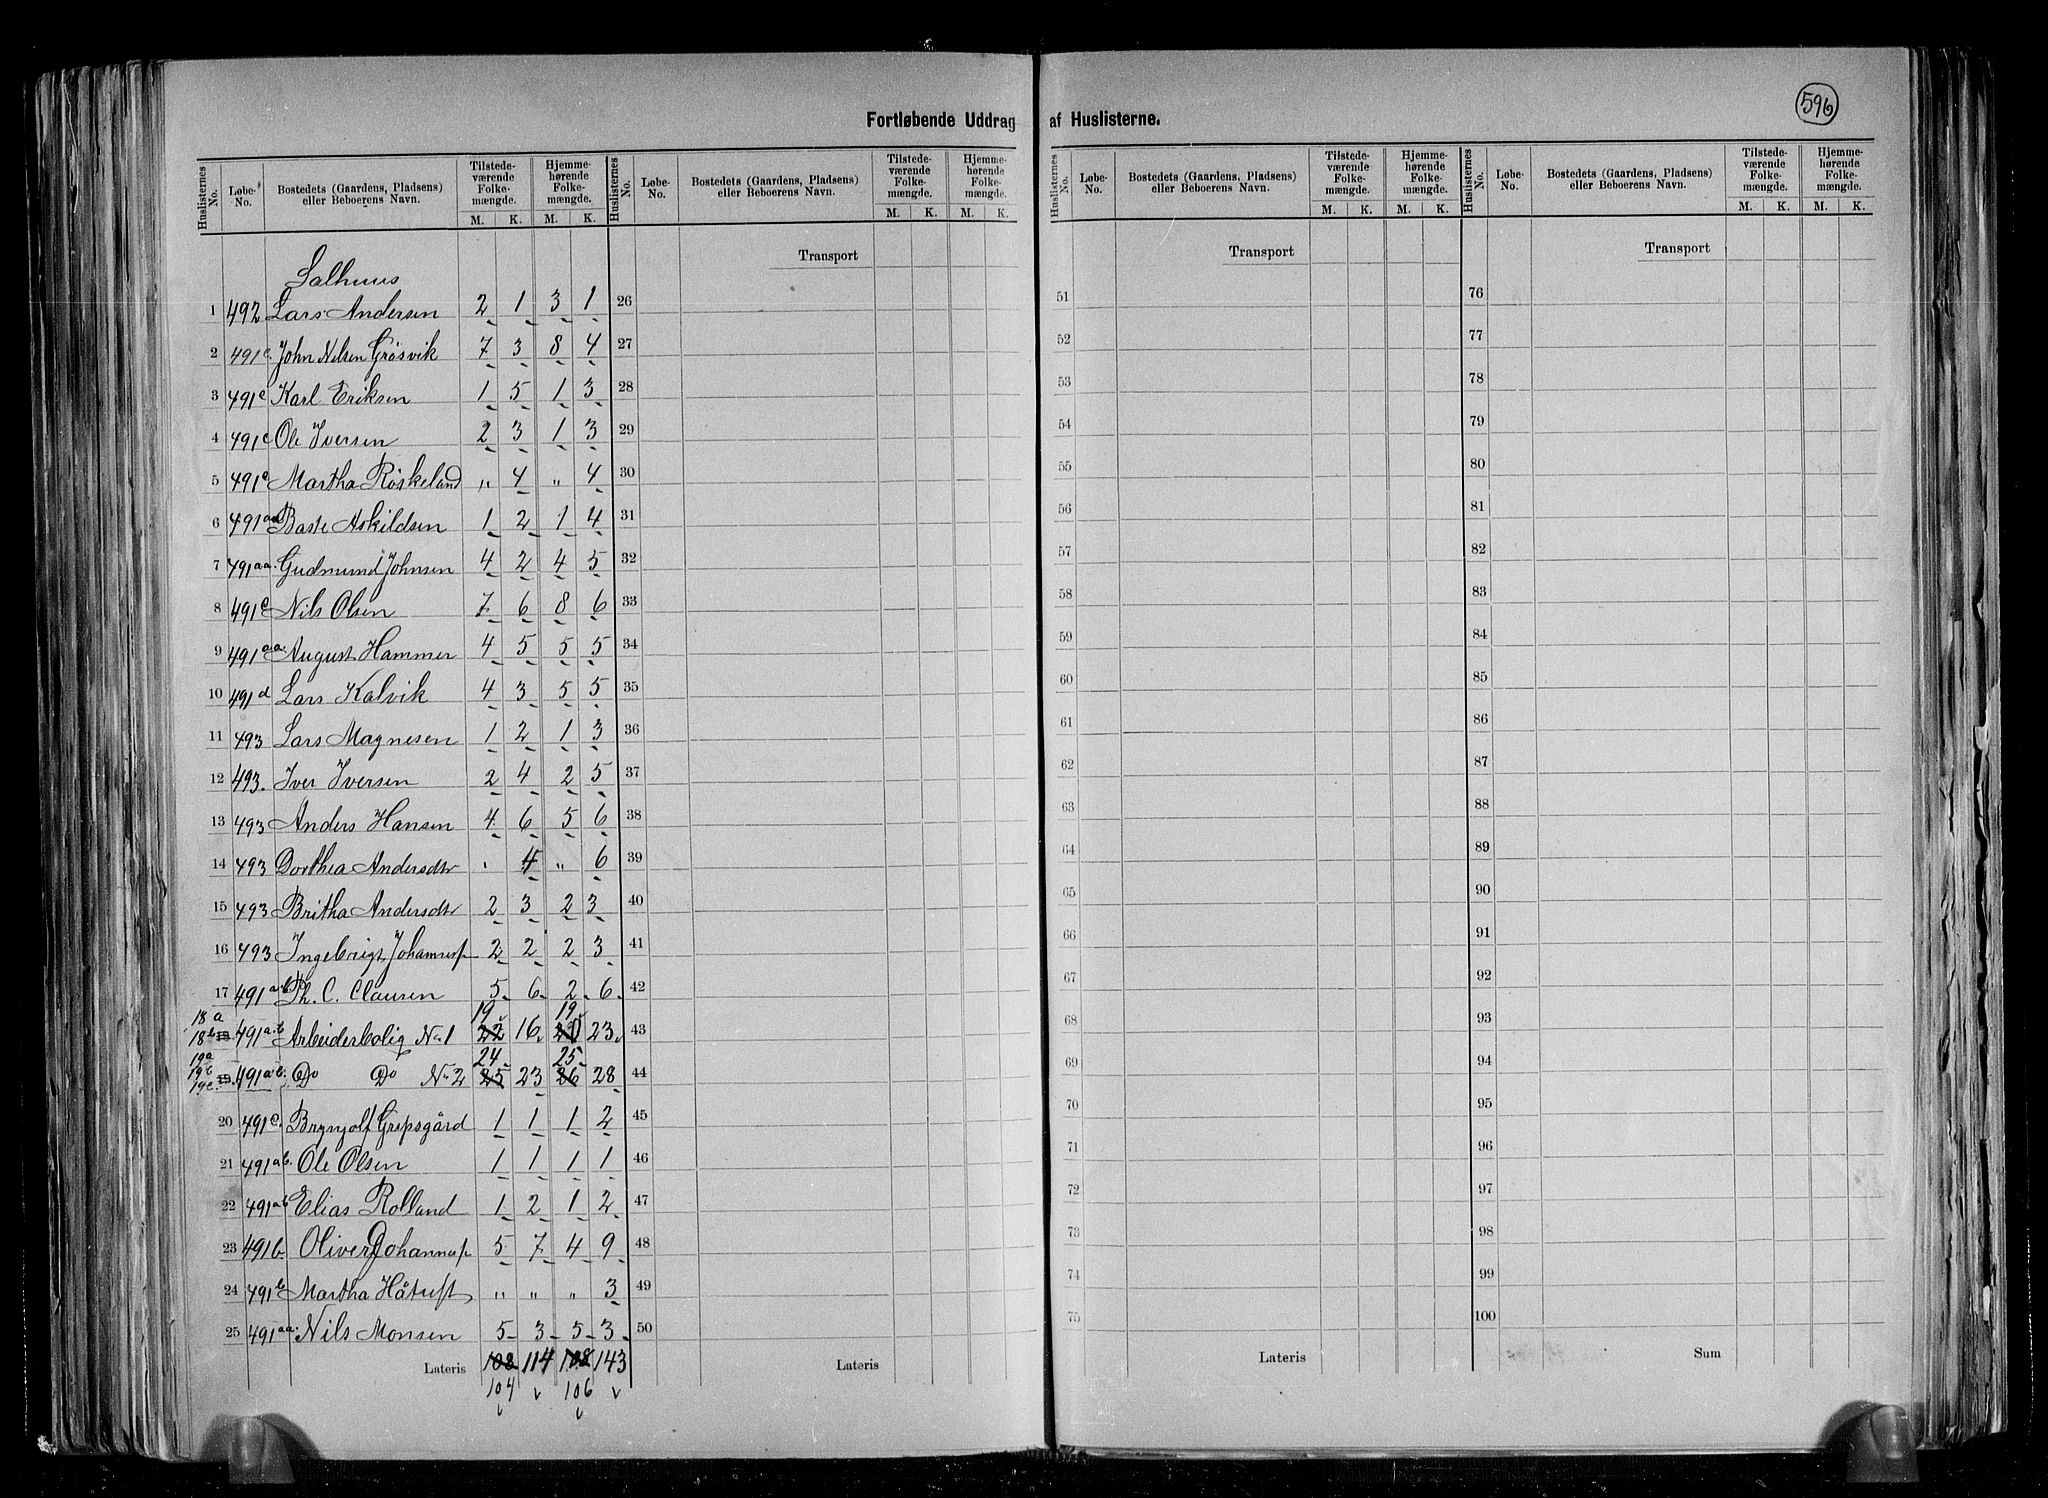 596
Fortløbende Uddrag af Huslisterne.
Huslisternes No. Løbe-No. Bostedets (Gaardens, Pladsens) eller Beboerens Navn. Tilstede-værende Folke-mængde. M. K. Hjemme-hørende Folke-mængde. M. K.
Huslisternes No. Løbe-No. Bostedets (Gaardens, Pladsens) eller Beboerens Navn. Tilstede-værende Folke-mængde. M. K. Hjemme-hørende Folke-mængde. M. K.
Huslisternes No. Løbe-No. Bostedets (Gaardens, Pladsens) eller Beboerens Navn. Tilstede-værende Folke-mængde. M. K. Hjemme-hørende Folke-mængde. M. K.
Huslisternes No. Løbe-No. Bostedets (Gaardens, Pladsens) eller Beboerens Navn. Tilstede-værende Folke-mængde. M. K. Hjemme-hørende Folke-mængde. M. K.
Salhuus Transport Transport Transport
1 492 Lars Andersen 2 1 3 1 26 51 76
2 491c. John Nilsen Grösvik 7 3 8 4 27 52 77
3 491c Karl Eriksen 1 5 1 3 28 53 78
4 491c Ole Iversen 2 3 1 3 29 54 79
5 491c Martha Röskeland " 4 " 4 30 55 80
6 491aa Baste Askildsen 1 2 1 4 31 56 81
7 491aa. Gudmund Johnsen 4 2 4 5 32 57 82
8 491c Nils Olsen 7 6 8 6 33 58 83
9 491aa. August Hammer 4 5 5 5 34 59 84
10 491d Lars Kalvik 4 3 5 5 35 60 85
11 493 Lars Magnesen 1 2 1 3 36 61 86
12 493. Iver Iversen 2 4 2 5 37 62 87
13 493 Anders Hansen 4 6 5 6 38 63 88
14 493 Dorthea Andersdtr " 4 " 6 39 64 89
15 493 Britha Andersdtr 2 3 2 3 40 65 90
16 493 Ingebrigt Johannesf 2 2 2 3 41 66 91
17 491ab Th. C. Clausen 5 6 2 6 42 67 92
18a 19 19
18b 18 491ab Arbeiderbolig No 1 22 16 23 43 68 93
19a 24 25
19b 19 491ab. Do Do No 2 25 23 26 28 44 69 94
19c.
20 491c. Brynjolf Gripsgård 1 1 1 2 45 70 95
21 491ab. Ole Olsen 1 1 1 1 46 71 96
22 491ab Elias Rolland 1 2 1 2 47 72 97
23 491b. Oliver Johannesf 5 7 4 9 48 73 98
24 491b Martha " " " 3 49 74 99
25 491aa. Nils Monsen 5 3 5 3 50 75 100
Lateris 108 114 108 143 Lateris Lateris Sum
104 106